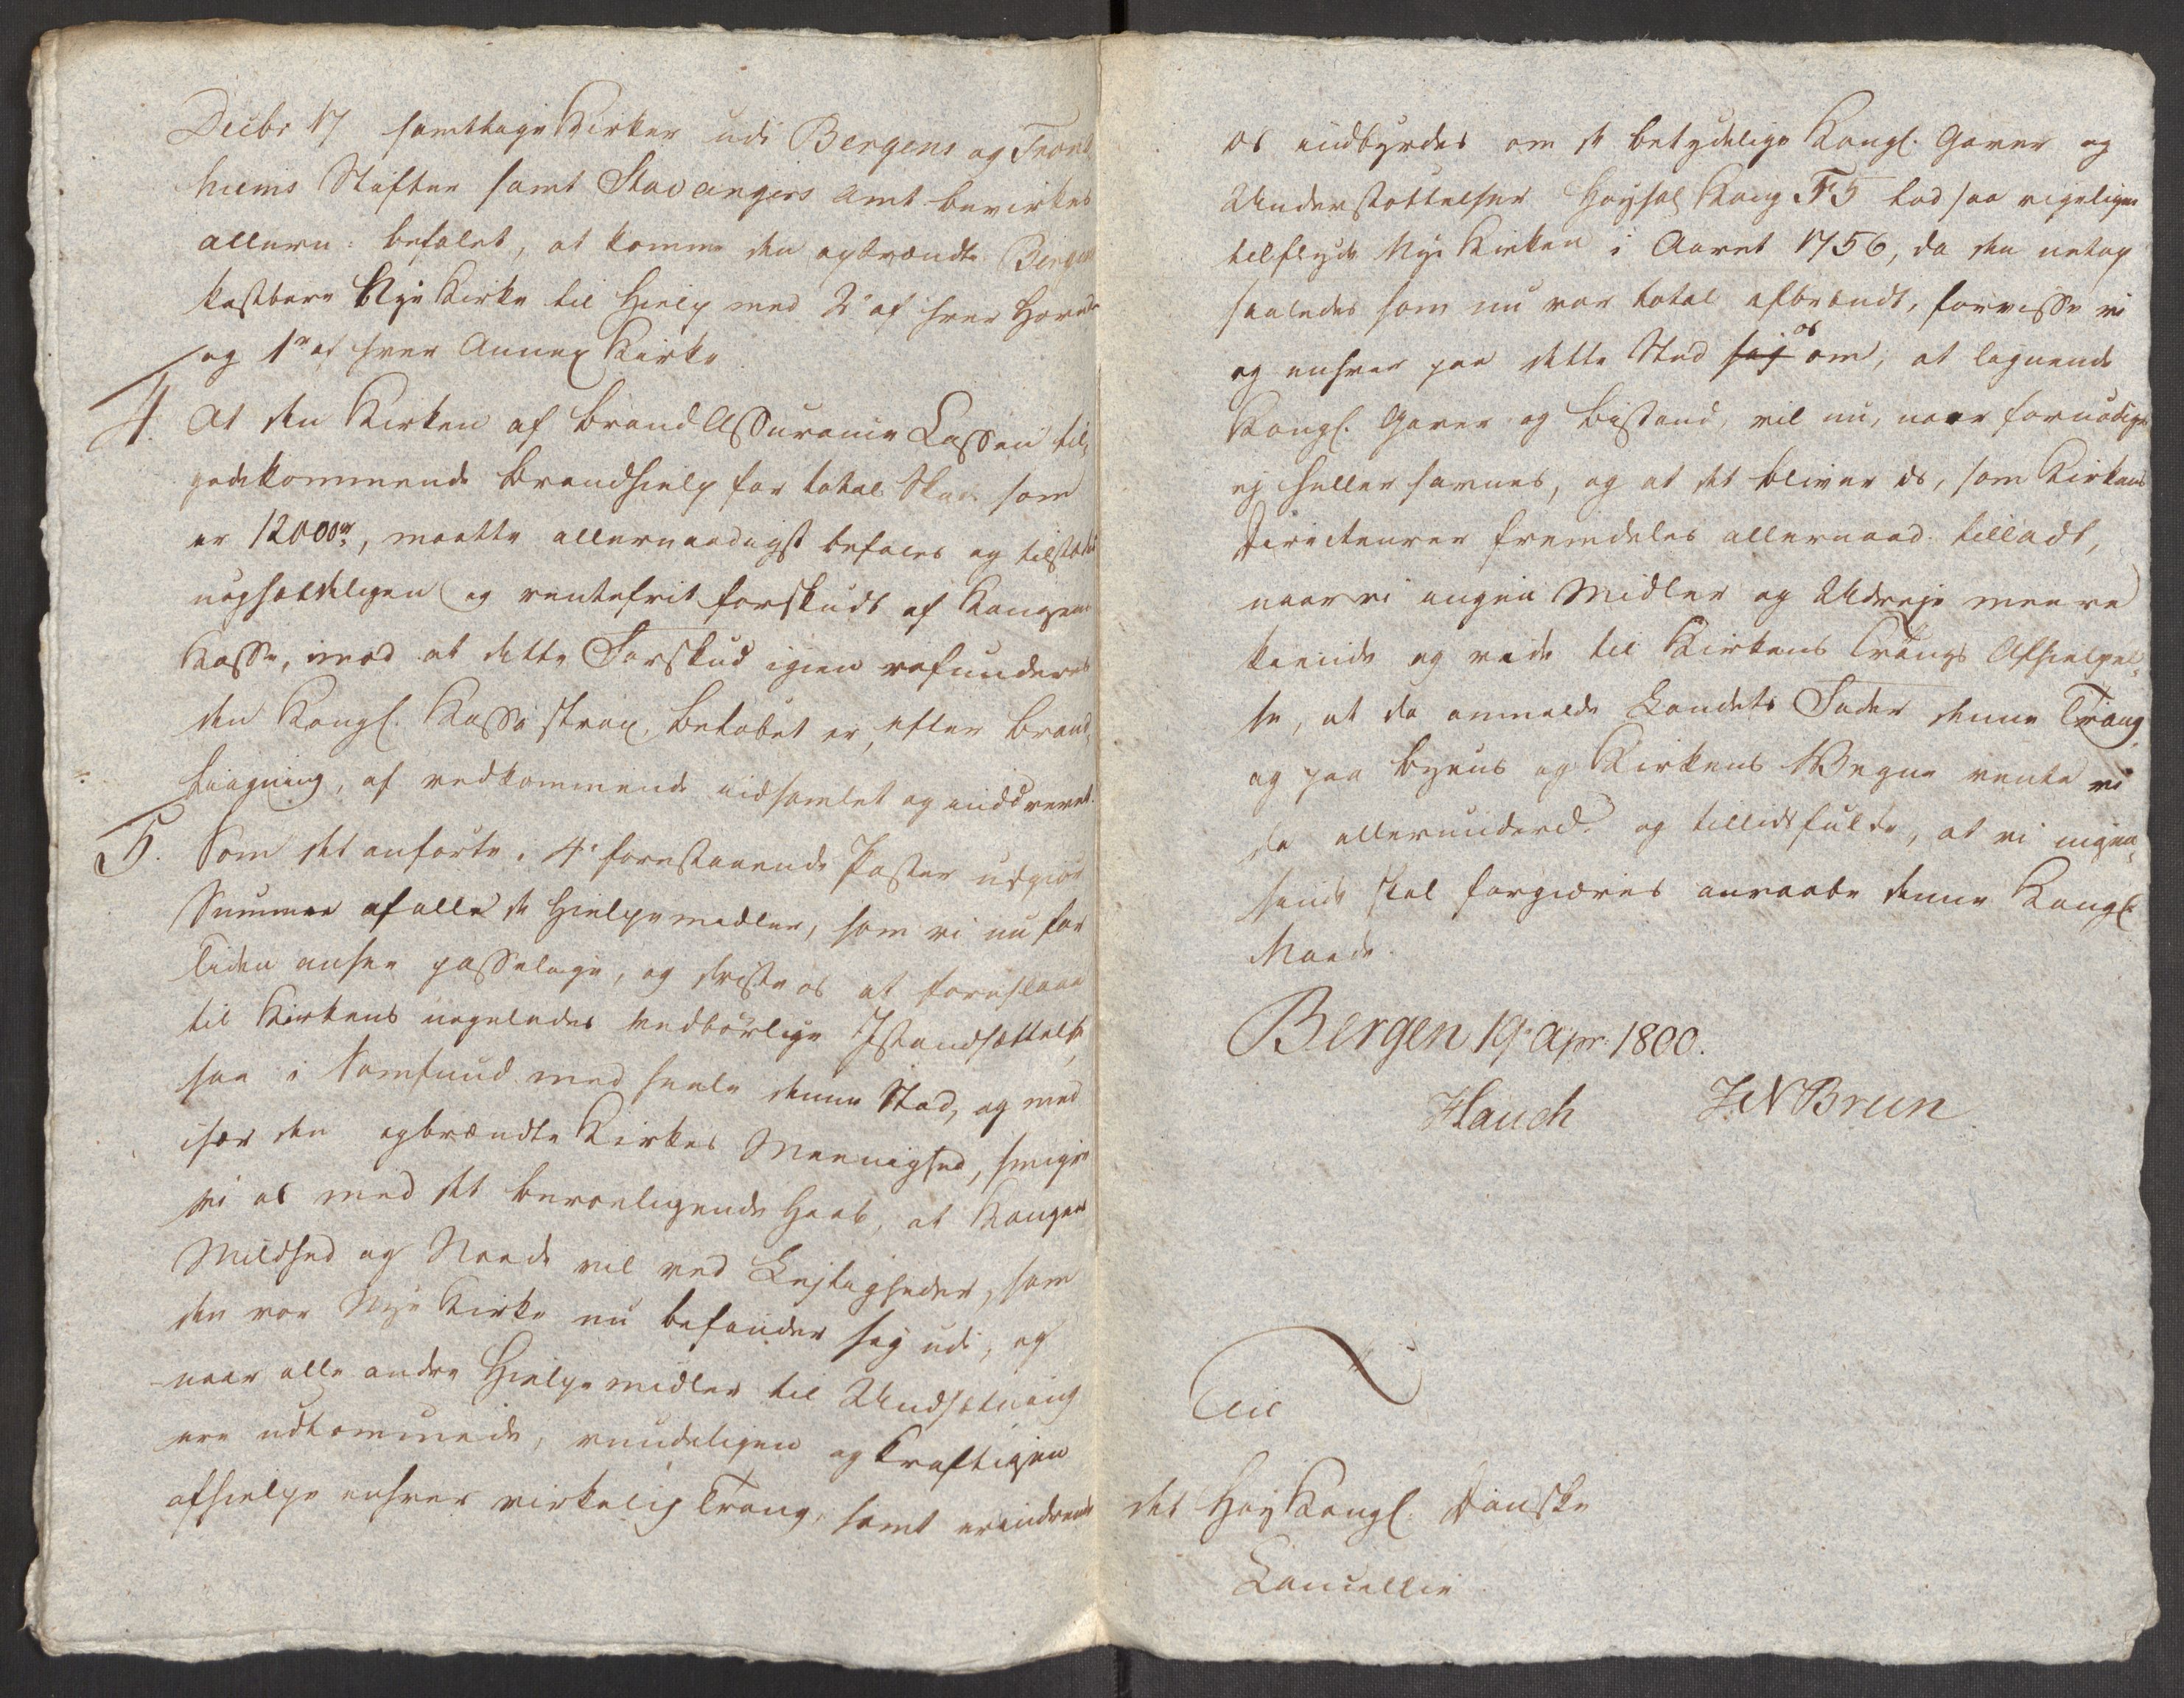 Decbr 17 samtlige Kirker udi Bergens og Trond¬
hiems Stifter samt Stavangers Amt bevirkes
allern: befalet, at komme den opbrændte Bergens
kostbare Nye Kirke til Hielp med 2 rd af hver Hoved
og 1 rd af hver Annex Kirke
4. At den Kirken af Brand Assurance Cassen til¬
godekommende Brandhielp for total Skade som
er 12000 rd, maatte allernaadigst befales og tilstædes
uopholdeligen og rentefrit forskudt af Kongens
Kasse, imod at dette Forskud igien refunderes
den Kongl. Kasse strax, beløbet er, efter Brand¬
Ligning, af vedkommende indsamlet og inddrevet.
5. Som det anførte i 4 forestaaende Poster udgiør
Summen af alle de Hielpemidler, som vi nu for
Tiden ansee passelige, og driste os at foreslaae
til Kirkens uegeledes nødbørlige Istandsættelse
saa i Samfund med heele denne Stad, og med
især den opbrændte Kirkes Meenighed, smigre
vi os med det beroeligende Haab, at Kongens
Mildhed og Naade vil ved Lejligheder, som
den vor Nye Kirke nu befinder sig udi, og
naar alle andre Hielpemidler til Undsætning
ere udtømmede, mundeligen og kraftigen
afhielpe enhver virkelig Trang, samt erindrende
os indbyrdes om de betydelige Kongl. Gaver og
Understøttelser Høysal Kong F5 lod saa rigeligen
tilflyde Nye Kirken i Aaret 1756, da den netop
saaledes som nu var total afbrændt, forvisse vi
og enhver paa dette Sted sig os om, at lignende
Kongl. Gaver og Bistand, vil nu, naar fornødiges
ej heller savnes, og at det bliver os, som Kirkens
Directeurer fremdeles allernaad. tilladt,
naar vi ingen Midler og Udveje meere
kiende og vide til Kirkens Trangs Afhielpel¬
se, at da anmelde Landets Fader denne Trang,
og paa Byens og Kirkens Vegne vente vi
da allerunderd. og tillidsfulde, at vi ingen¬
sinde skal forgieves anraabe denne Kongl.
Naade.
Bergen 19 Apr: 1800.
Hauch JNBrun
Til
det Høy Kongl. Danske
Cancellie